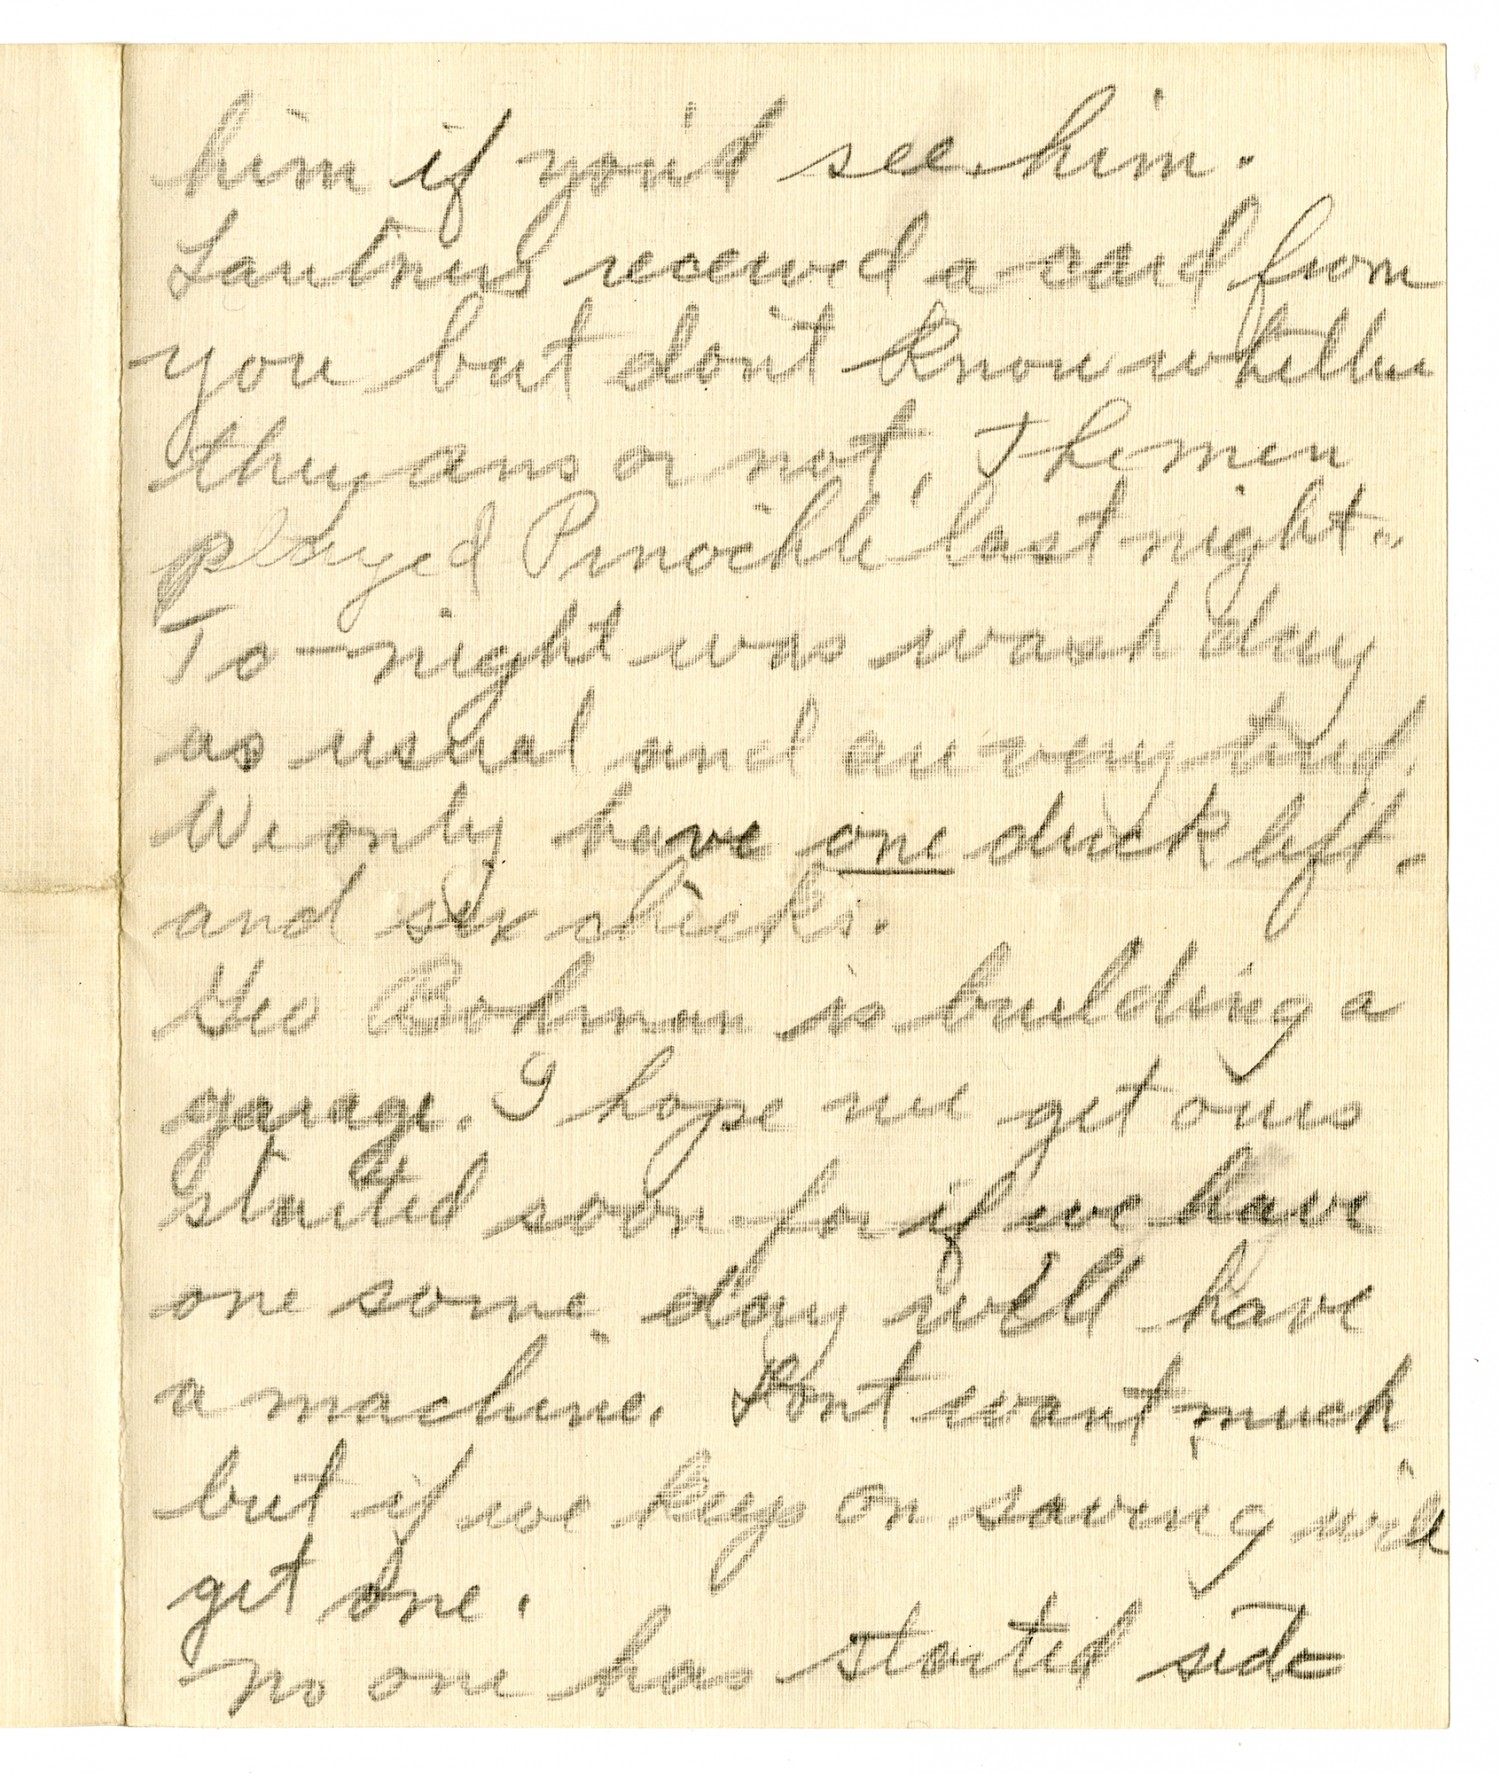 him if you'd see him.
received a card from
you but don't know whether
they ans or not. The men
played Pinochle last night.
To-night was wash day
as usual and are very tired.
We only have one duck left.
and six chicks.
Geo Bohman is building a
garage. I hope we get ours
started soon for if we have
one some day we'll have
a machine. Dont want much
but if we keep on saving will
get one.
No one has started side